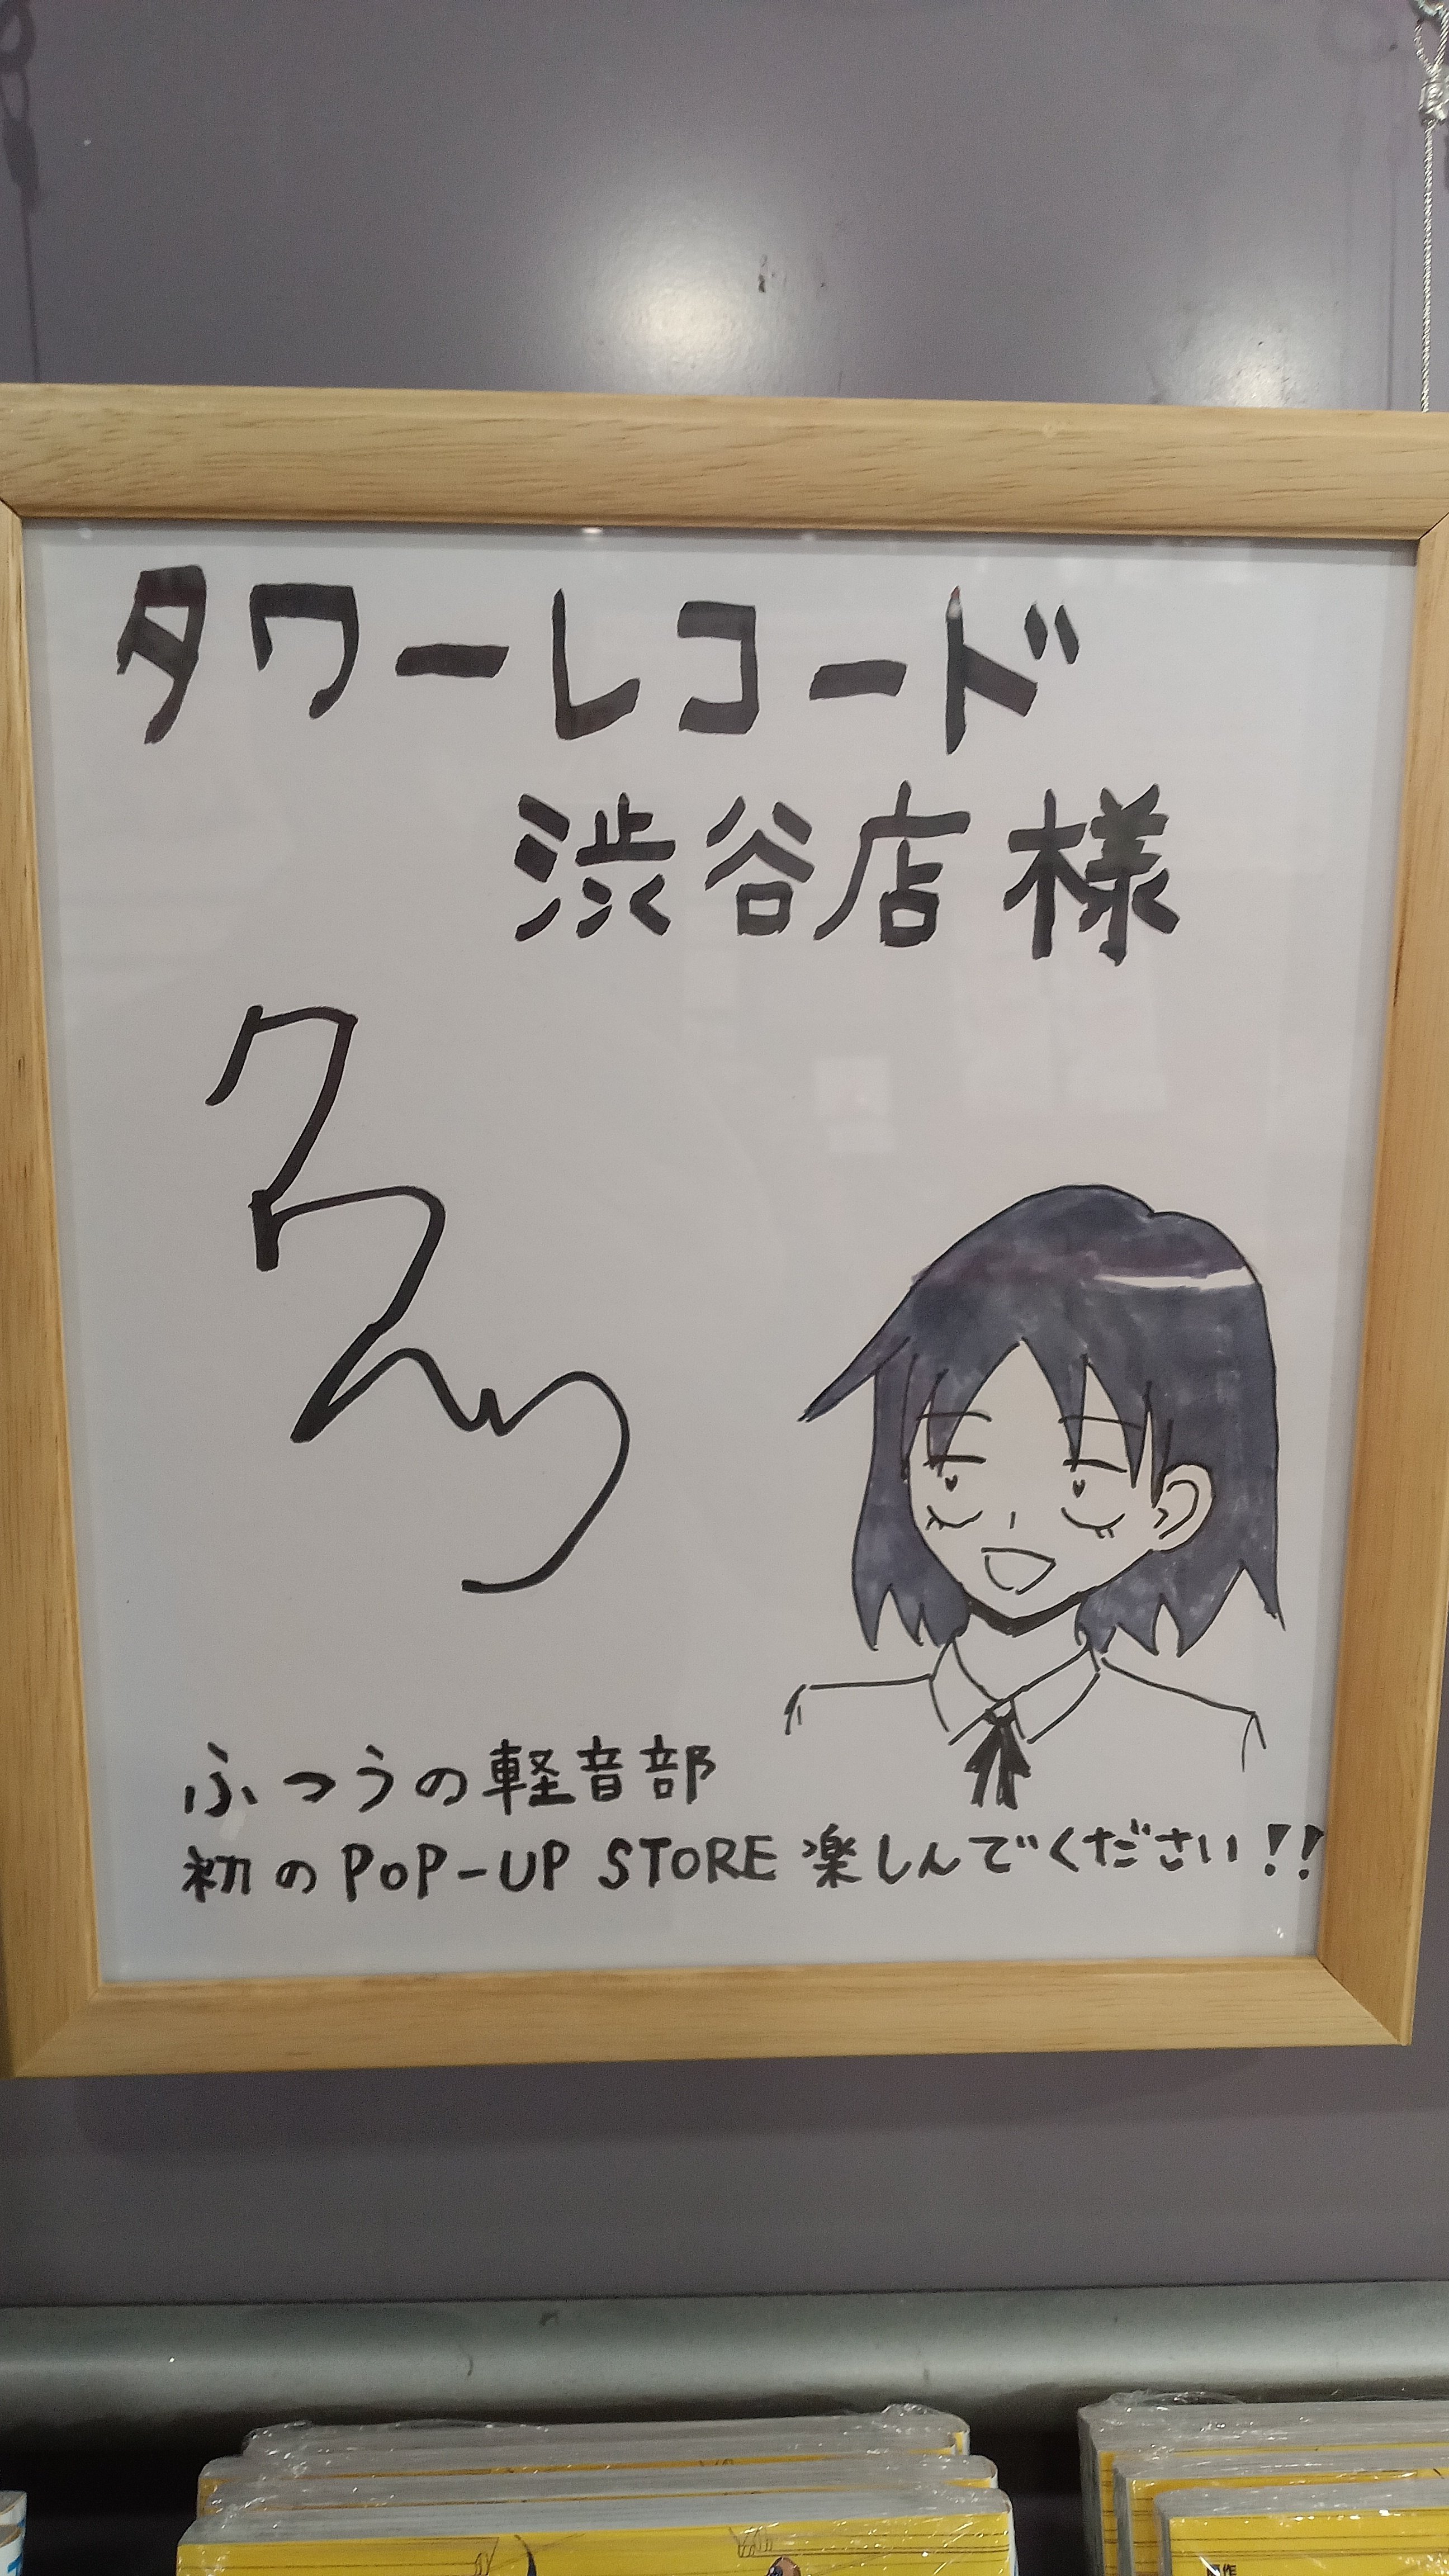 タワーレコード
渋谷店様
ふつうの軽音部
初のPOP-UP STORE 楽しんでください!!